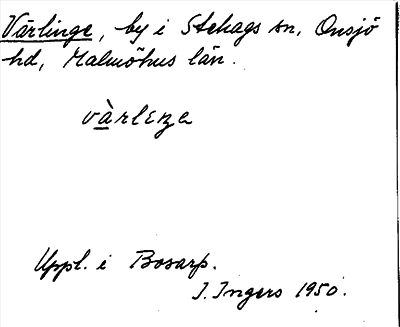 Värlinge, by i Stehags sn, Onsjö
hd, Malmöhus län.
vàrlɛŋa
Uppl. i Bosarp.
I. Ingers 1950.